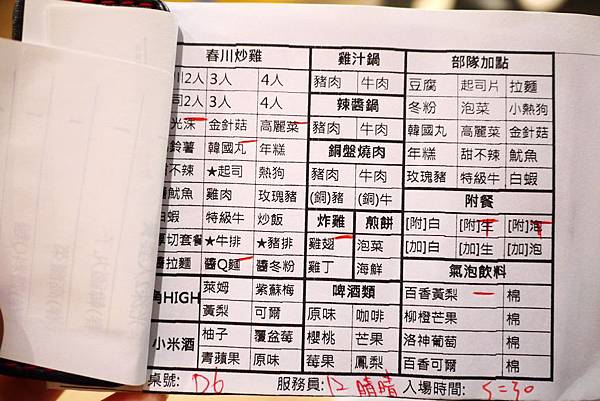 春川炒雞 雞汁鍋 部隊加點
2人 3人 4人 豬肉 牛肉 豆腐 起司片 拉麵
2人 3人 4人 辣醬鍋 冬粉 泡菜 小熱狗
金針菇 高麗菜 豬肉 牛肉 韓國丸 高麗菜 金針菇
鈴薯 韓國丸 年糕 銅盤燒肉 年糕 甜不辣 魷魚
不辣 ★起司 熱狗 豬肉 牛肉 玫瑰豬 特級牛 白蝦
魷魚 雞肉 玫瑰豬 (銅)豬 (銅)牛 附餐
白蝦 特級牛 炒飯 炸雞 煎餅 [附]白 [附]生 [附]泡
切套餐 ★牛排 ★豬排 雞翅 泡菜 [加]白 [加]生 [加]泡
醬拉麵 醬Q麵 醬冬粉 雞丁 海鮮 氣泡飲料
角HIGH 萊姆 紫蘇梅 啤酒類 百香黃梨 棉
黃梨 可爾 原味 咖啡 柳橙芒果 棉
小米酒 柚子 覆盆莓 櫻桃 芒果 洛神葡萄 棉
青蘋果 原味 莓果 鳳梨 百香可爾 棉
桌號: D6 服務員: 12 晴晴 入場時間: 5=30